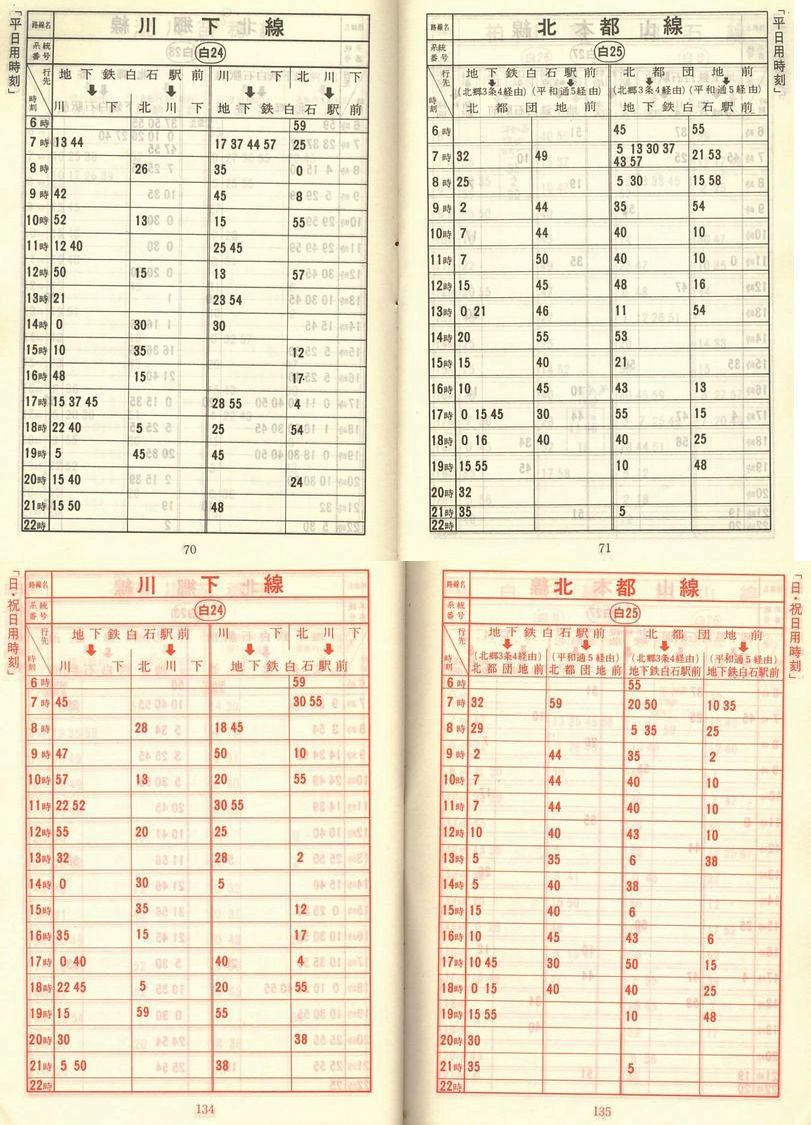 「平日用時刻」
路線名 川下線
系統番号 白24
行先 地下鉄白石駅前 川下 北川下
時刻 川下 北川下 地下鉄白石駅前
6時 59
7時 13 44 17 37 44 57 25
8時 26 35 0
9時 42 45 8
10時 52 13 15 55
11時 12 40 25 45
12時 50 15 13 57
13時 21 23 54
14時 0 30 30
15時 10 35 12
16時 48 15 17
17時 15 37 45 28 55 4
18時 22 40 5 25 54
19時 5 45 45
20時 15 40 24
21時 15 50 48
22時
70
「平日用時刻」
路線名 北都線
系統番号 白25
行先 地下鉄白石駅前 北都団地前
(北郷3条4経由) (平和通5経由) (北郷3条4経由) (平和通5経由)
時刻 北都団地前 地下鉄白石駅前
6時 45 55
7時 32 49 5 13 30 37 21 53
43 57
8時 25 5 30 15 58
9時 2 44 35 54
10時 7 44 40 10
11時 7 50 40 10
12時 15 45 48 16
13時 0 21 46 11 54
14時 20 55 53
15時 15 40 21
16時 10 45 43 13
17時 0 15 45 30 55 15
18時 0 16 40 40 25
19時 15 55 10 48
20時 32
21時 35 5
22時
71
「日・祝日用時刻」
路線名 川下線
系統番号 白24
行先 地下鉄白石駅前 川下 北川下
時刻 川下 北川下 地下鉄白石駅前
6時 59
7時 45 30 55
8時 28 18 45
9時 47 50 10
10時 57 13 20 55
11時 22 52 30 55
12時 55 20 25
13時 32 28 2
14時 0 30 5
15時 35 12
16時 35 15 17
17時 0 40 40 4
18時 22 45 5 20 55
19時 15 59 55
20時 30 38
21時 5 50 38
22時
134
「日・祝日用時刻」
路線名 北都線
系統番号 白25
行先 地下鉄白石駅前 北都団地前
(北郷3条4経由) (平和通5経由) (北郷3条4経由) (平和通5経由)
時刻 北都団地前 北都団地前 地下鉄白石駅前 地下鉄白石駅前
6時 55
7時 32 59 20 50 10 35
8時 29 5 35 25
9時 2 44 35 2
10時 7 44 40 10
11時 7 44 40 10
12時 10 40 43 10
13時 5 35 6 38
14時 5 40 38
15時 15 40 6
16時 10 45 43 6
17時 10 45 30 50 15
18時 0 15 40 40 25
19時 15 55 10 48
20時 30
21時 35 5
22時
135